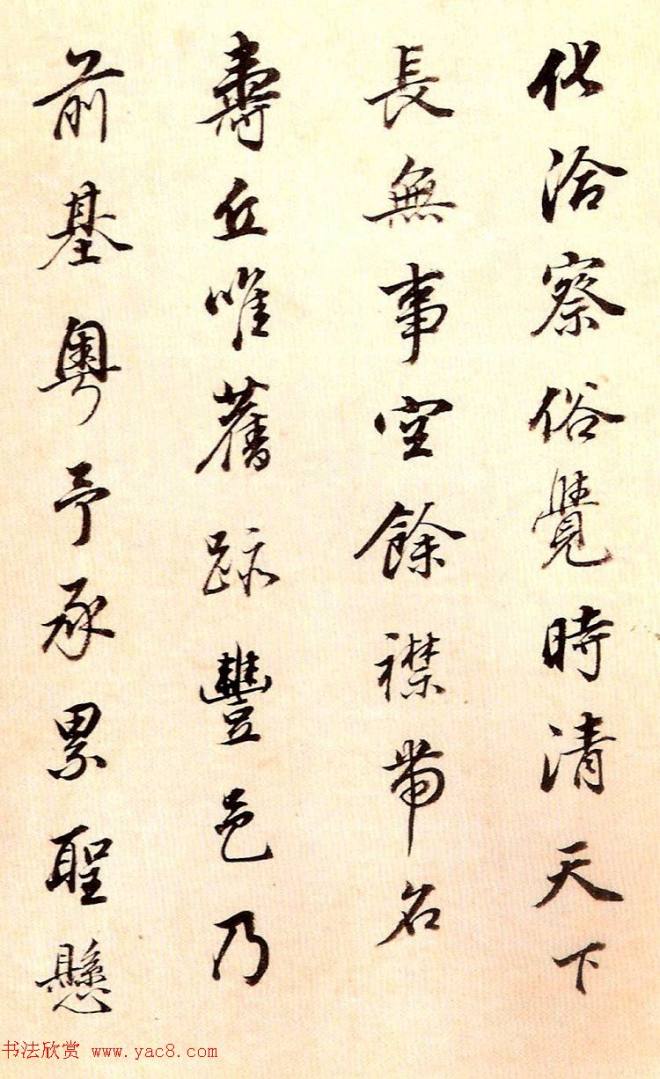 化洽察俗覺時清天下
長無事空餘襟帶名
壽丘唯舊跡豐邑乃
前基粵予承累聖懸
书法欣赏 www.yac8.com